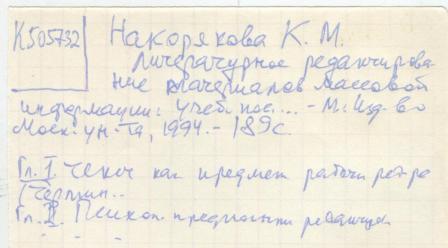 К505732
Накорякова К. М.
Литературное редактирова-
ние материалов массовой
информации: Учеб. пос.... - М.: Изд-во
Моск. ун-та, 1994. - 189с.
Гл. I. Текст как предмет работы ред-ра
Гл. II. Психол. предпосылки редактир.